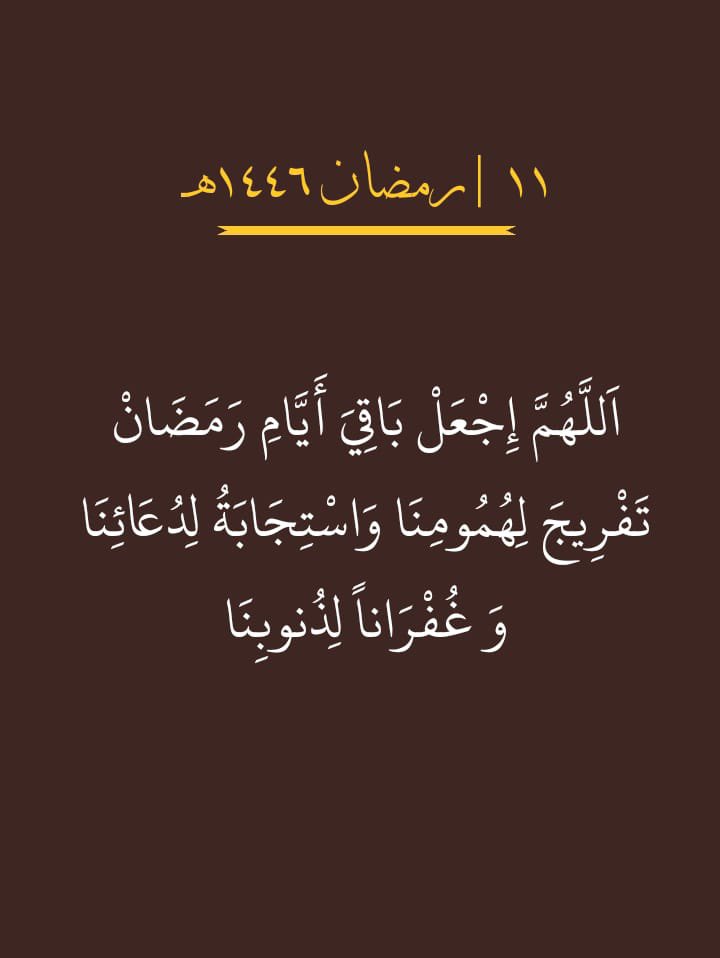 ١١ | رمضان ١٤٤٦هـ
اَللَّهُمَّ إِجْعَلْ بَاقِيَ أَيَّامِ رَمَضَانْ
تَفْرِيجَ لِهُمُومِنَا وَاسْتِجَابَةُ لِدُعَائِنَا
وَ غُفْرَاناً لِذُنوبِنَا